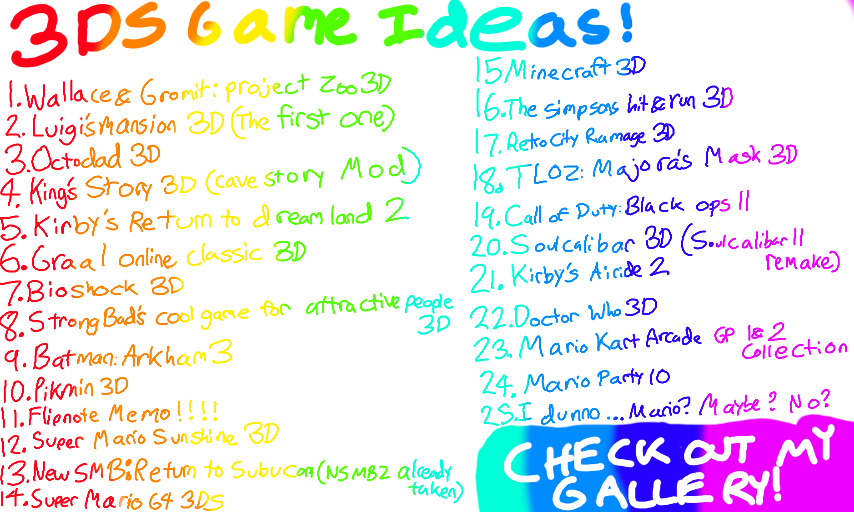 3DS Game Ideas!
1. Wallace & Gromit: project Zoo 3D
2. Luigi's Mansion 3D (The first one)
3. Octodad 3D
4. King's Story 3D (cave story Mod)
5. Kirby's Return to dream land 2
6. Graal online classic 3D
7. Bioshock 3D
8. Strong Bad's cool game for attractive people
3D
9. Batman: Arkham 3
10. Pikmin 3D
11. Flipnote Memo!!!!
12. Super Mario Sunshine 3D
13. New SMB: Return to Subucon (NSMB2 already
taken)
14. Super Mario 64 3DS
15 Minecraft 3D
16. The simpsons hit & run 3D
17. Retro City Ramage 3D
18. TLOZ: Majora's Mask 3D
19. Call of Duty: Black ops II
20. Soulcalibar 3D (Soulcalibar II
remake)
21. Kirby's Airide 2
22. Doctor Who 3D
23. Mario Kart Arcade GP 1 & 2
Collection
24. Mario Party 10
25. I dunno... Mario? Maybe? No?
CHECK OUT MY
GALLERY!